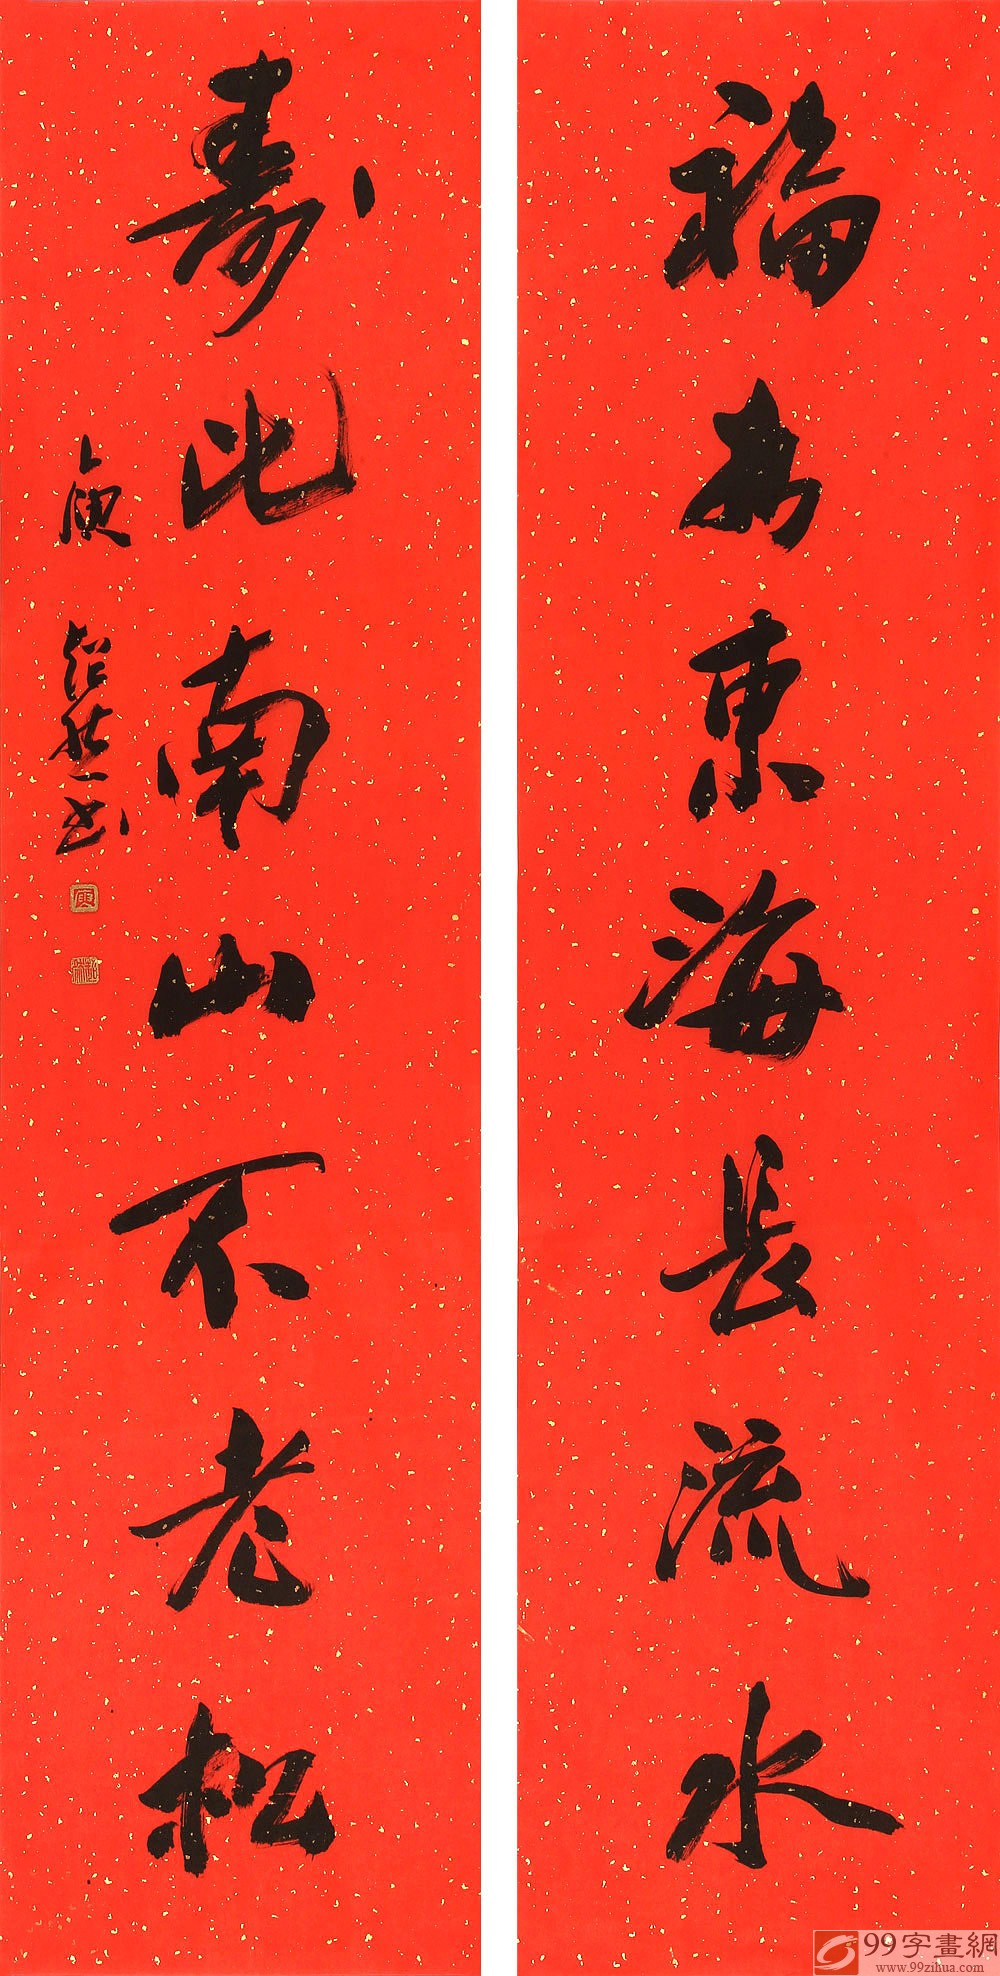 福如東海長流水
壽比南山不老松
庚
超然書
庚
99字畫網
www.99zihua.com